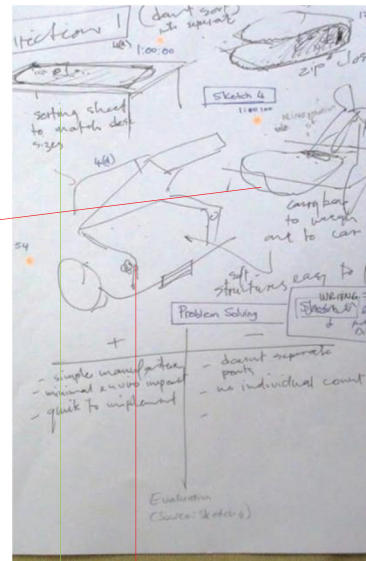 1
(don't sort
to separate
4(a)
1:00:00
zip close
sorting sheet
to match desk
sizes
Sketch 4
1:00:00
4(a)
carry bag
to weigh
and to car
S4
soft
structures, easy to
WRITING
Problem Solving
+
-
- simple manufacture
- minimal enviro impact
- quik to implement
- doesnt separate
parts
- no individual count
-
Evaluation
(Source: Sketch 4)